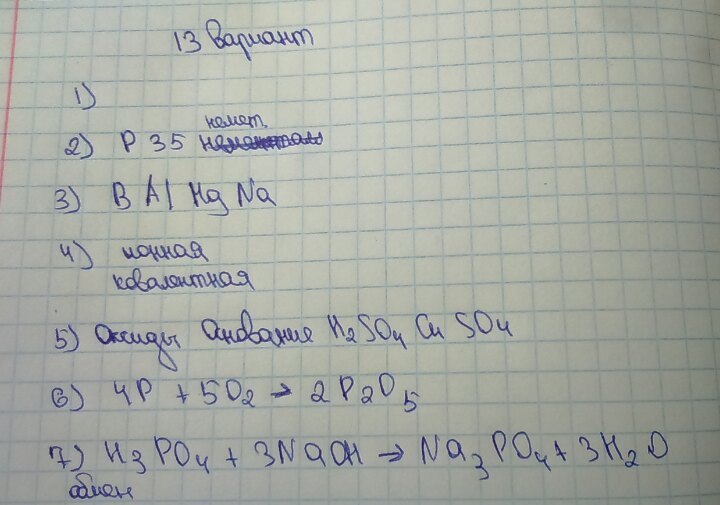 13 вариант
1)
немет.
2) P 35
3) B Al Hg Na
4) ионная
ковалентная
5) Оксиды Онование H2SO4 Cu SO4
6) 4P + 5O2 → 2P2O5
7) H3PO4 + 3NaOH → Na3PO4 + 3H2O
обмен